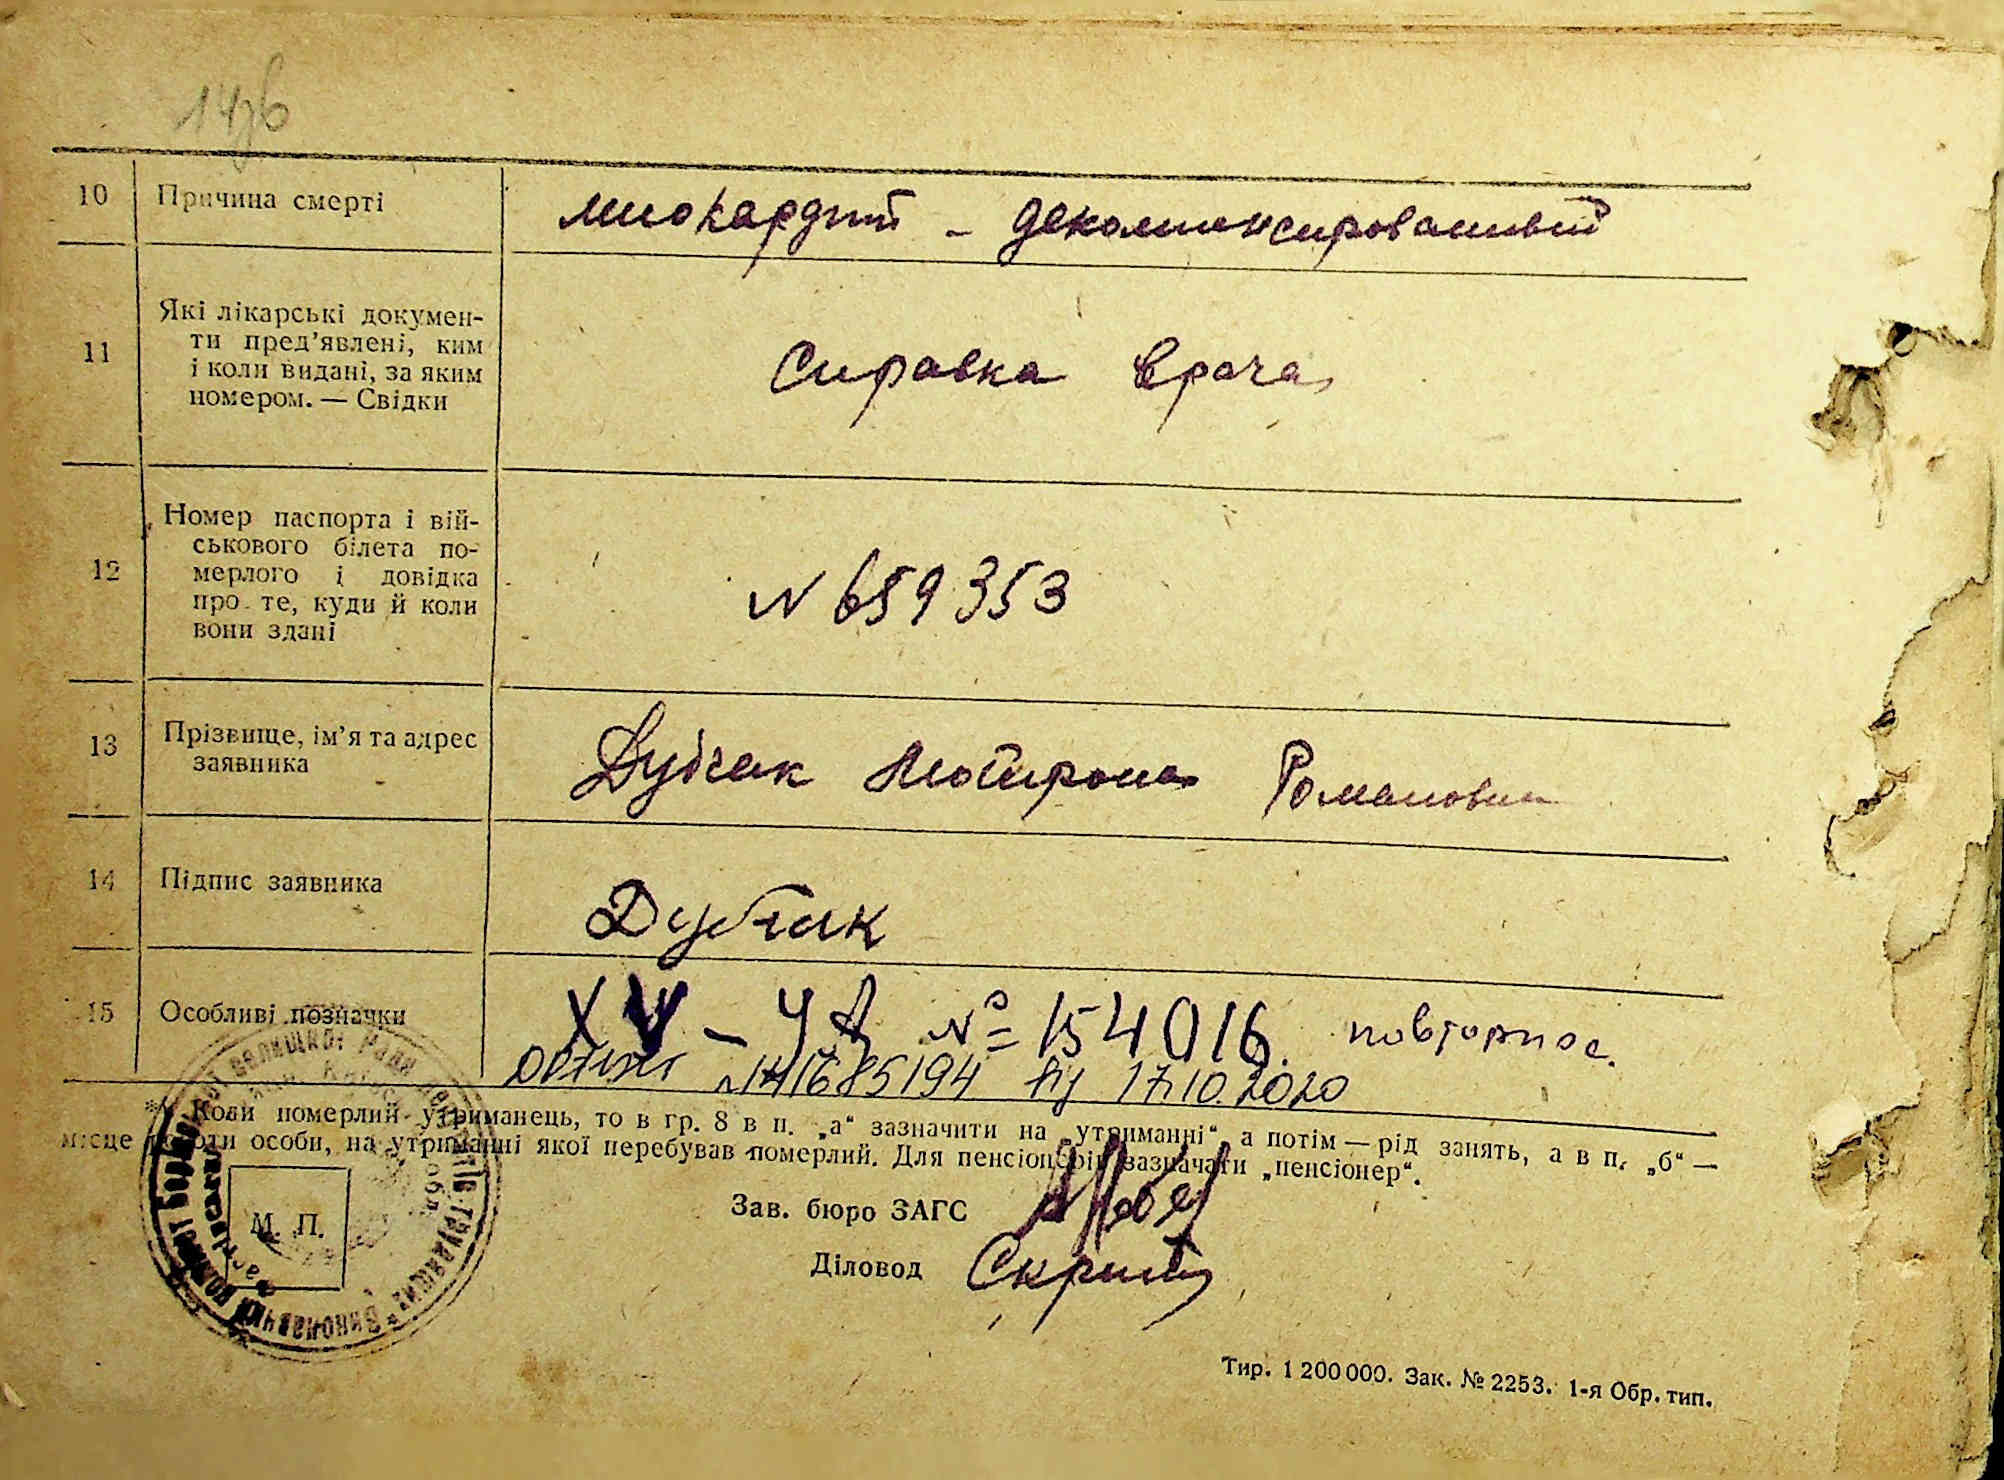 10 Причина смерті миокардит - декомпенсированный
11 Які лікарські докумен-
ти пред’явлені, ким
і коли видані, за яким
номером. — Свідки
Справка врача
12 Номер паспорта і вій-
ськового білета по-
мерлого і довідка
про те, куди й коли
вони здані
N 659353
13 Прізвище, ім’я та адрес
заявника
Дубчак Романович
14 Підпис заявника Дубчак
15 Особливі позначки XV - УА № 154016. повторное.
17.10.2020
*) Коли померлий утриманець, то в гр. 8 в п. „а“ зазначити на „утриманні“, а потім — рід занять, а в п. „б“ —
місце роботи особи, на утриманні якої перебував померлий. Для пенсіонерів зазначати „пенсіонер“.
Зав. бюро ЗАГС
М. П.
Діловод
Тир. 1 200 000. Зак. № 2253. 1-я Обр. тип.